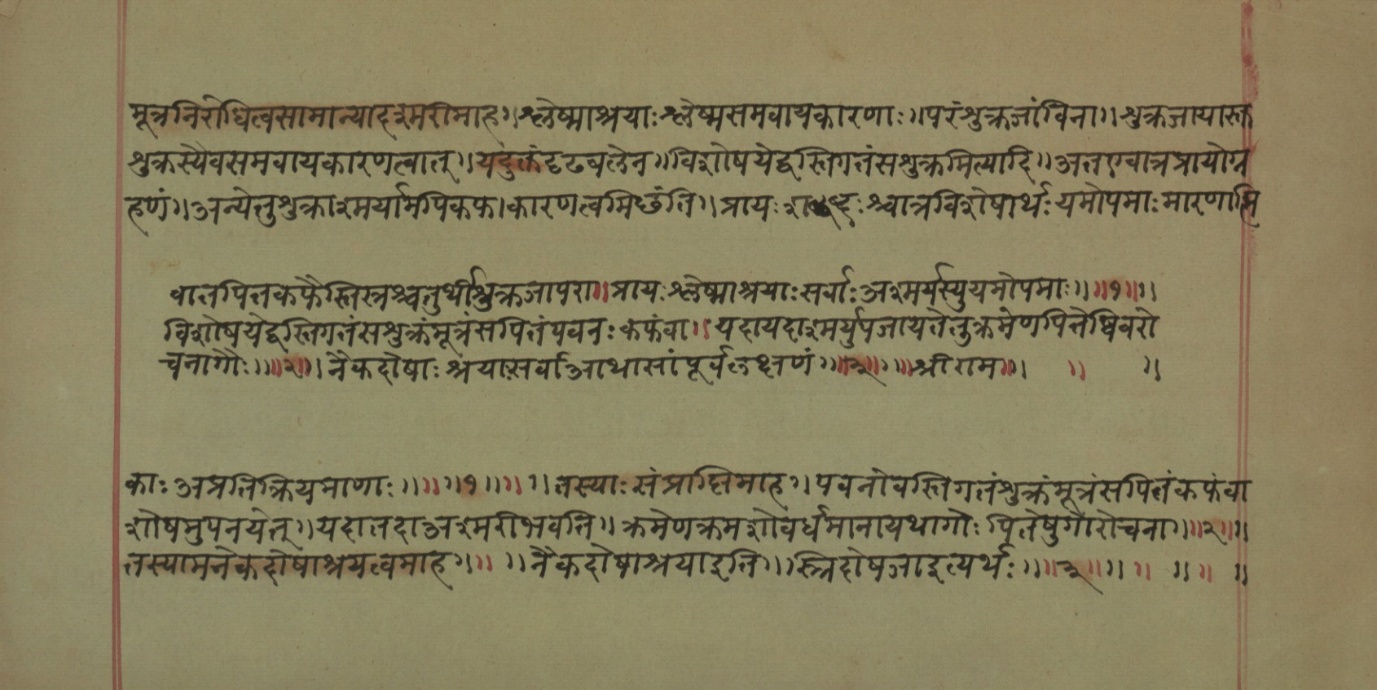 मूत्रनिरोधित्वसामान्यादश्मरीमाह॥श्लेष्माश्रयाःश्लेष्मसमवायकारणाः॥परंशुक्रजांविना॥शुक्रजायास्तु
शुक्रस्यैवसमवायकारणत्वात्॥यदुक्तंदृढबलेन॥विशोषयेद्वस्तिगतंसशुक्रमित्यादि॥अतएवात्रप्रायोग्र
हणं॥अन्येतुशुक्राश्मर्यामपिकफ।कारणत्वमिछंति॥प्रायःशब्दःश्चात्रविशेषार्थःयमोपमाःमारणात्मि
वातपित्तकफैस्तिस्रश्चतुर्थीशुक्रजापरा॥प्रायःश्लेष्माश्रयाःसर्वाःअश्मर्यस्युयमोपमाः॥॥१॥॥
विशोषयेद्वस्तिगतंसशुक्रंमूत्रंसपित्तंपवनःकफंवा॥यदायदाश्मर्युपजायतेतुक्रमेणपित्तेष्विवरो
चनागोः॥॥२॥।नैकदोषाःश्रयाःसर्वाआथासांपूर्वलक्षणं॥॥३॥॥॥श्रीराम॥। ॥ ॥
काःअप्रतिक्रियमाणाः॥॥॥१॥॥॥तस्याःसंप्राप्तिमाह॥पवनोवस्तिगतंशुक्रंमूत्रंसपित्तंकफंवा
शोषमुपनयेत्॥यदातदाअश्मरीभवति॥क्रमेणक्रमशोवर्धमानायथागोः पित्तेषुगोरोचना॥॥२॥॥
तस्यामनेकदोषाश्रयत्वमाह॥॥ ॥नैकदोषाश्रयाइति॥स्त्रिदोषजाइत्यर्थः॥॥३॥॥ ॥ ॥॥ ॥